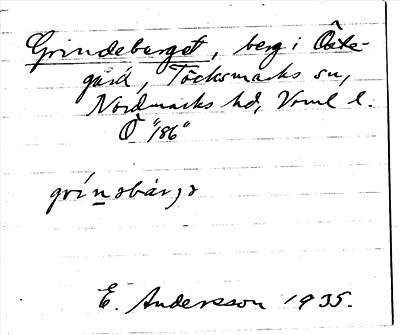 Grindeberget, berg i Öste-
gård, Töcksmarks sn,
Nordmarks hd, Vrml l.
Ö "186"
grínəbàrjə
E. Andersson 1935.